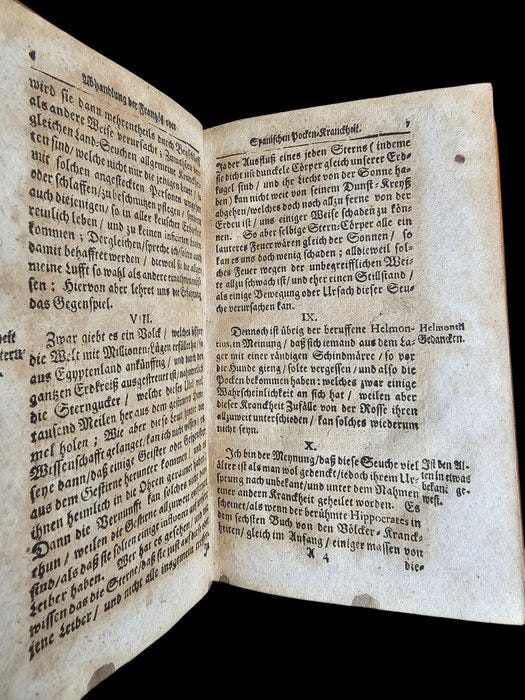 6
Abhandlung der Frantzos. oder
wird sie dann mehrentheils durch Beyschlaff
als andere Weise verursacht; Inmassen
gleichen Land-Seuchen allgemeine
ten sind/ welche nicht nur die jenigen
mit solchen angesteckten Personen umgehen
oder schlaffen/ zu beschmützen pflegen/ sondern
auch diejenigen/ so in aller keuscher Erbarkeit
freulich leben/ und zu keinen
kommen; Dergleichen/ spreche ich/
damit behafftet werden/ dieweil sie die allge-
meine Lufft so wohl als andere
sen: Hiervon aber lehret uns die Erfahrung
das Gegenspiel.
VII.
Zwar giebt es ein Volck/ welches bißher
die Welt mit Millionen-Lügen erfüllet/ so
aus Egyptenland ankünfftig/ und durch den
gantzen Erdkreiß ausgestreuet ist/ nahmentlich
die Sterngucker/ welche dieses Übel viel
tausend Meilen her aus dem gestirnten Him-
mel holen; Wie aber diese Leute hinter die
Wissenschafft gelanget/ kan ich nicht wissen/ es
seye dann/ daß einige Geister oder Gespenster
aus dem Gestirne herunter kommen/ und es
ihnen heimlich in die Ohren geraunet haben.
Dann die Vernunfft kan solches nicht
thun/ weilen die Gestirne allzuweit entfernet
sind/ als daß sie solten einige influentz auf unsere
Leiber haben. Wer hat es gesehen/
wissen das die Sterne/ daß sie just auf diese oder
jene Leiber/ und nicht alle insgemein
Spanischen Pocken-Kranckheit. 7
Ja der Ausfluß eines jeden Sterns (indeme
sie dicht uñ dunckele Cörper gleich unserer Erd-
kugel sind/ und ihr Liecht von der Sonne ha-
ben) kan nicht weit von seinem Dunst-Kreyß
abgehen/ welches doch noch allzu ferne von der
Erden ist/ uns einiger Weise schaden zu kön-
nen. So aber selbige Stern-Cörper alle ein
lauteres Feuer wären gleich der Sonnen/ so
kan es uns doch wenig schaden; alldieweil sol-
ches Feuer wegen der unbegreifflichen Wei-
te allzu schwach ist/ und eher einen Stillstand/
als einige Bewegung oder Ursach dieser Seu-
che verursachen kan.
IX.
Dennoch ist übrig der beruffene Helmon-
tius, in Meinung/ daß sich iemand aus dem La-
ger mit einer räudigen Schindmärre/ so vor
die Hunde gieng/ solte vergessen/ und also die
Pocken bekommen haben: welches zwar einige
Wahrscheinlichkeit an sich hat/ weilen aber
dieser Kranckheit Zufälle von der Rosse ihren
allzuweit unterschieden/ kan solches wiederum
nicht seyn.
Helmontii
Gedancken.
X.
Ich bin der Meynung/ daß diese Seuche viel
älter ist als man wol gedenckt/ iedoch ihrem Ur-
sprung nach unbekant/ und unter dem Nahmen
einer andern Kranckheit geheilet worden. Es
scheinet/ als wenn der berühmte Hippocrates in
dem sechsten Buch von den Völcker-Kranck-
heiten/ gleich im Anfang/ einiger massen von
Ist den Al-
ten in etwas
bekant ge-
west.
A 4
die-